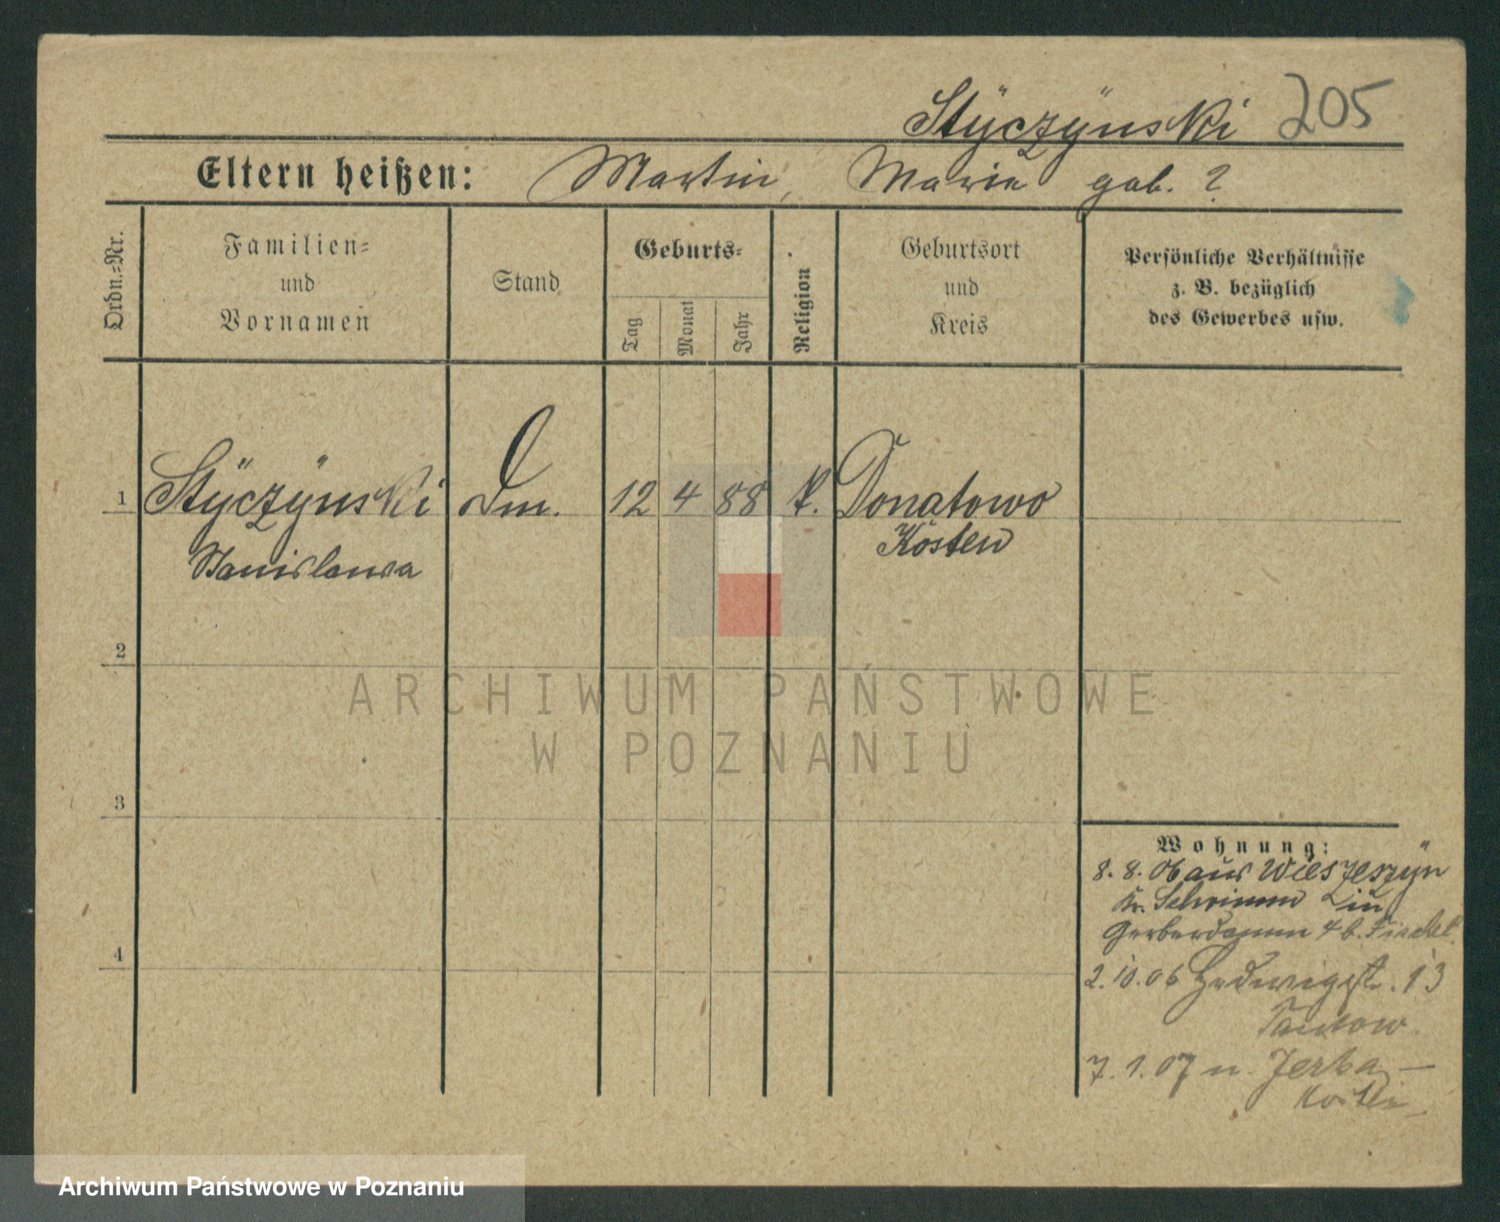 Stÿczÿnski 205
Eltern heißen: Martin, Marie geb. ?
Ordn.-Nr.
Familien-
und
Vornamen
Stand
Geburts-
Tag
Monat
Jahr
Religion
Geburtsort
und
Kreis
Persönliche Verhältnisse
z. B. bezüglich
des Gewerbes usw.
1 Stÿczÿnski Dm. 12 4 88 k. Donatowo
Kosten
Stanislawa
2
3
4
Wohnung:
8. 8. 06 aus Wieszeszÿn
Kr. Schrimm in
Gerberdamm 4 b.
2. 10. 06 Hedwigst. 13
7. 1. 07 n. Jerka
Kosten
ARCHIWUM PAŃSTWOWE
W POZNANIU
Archiwum Państwowe w Poznaniu